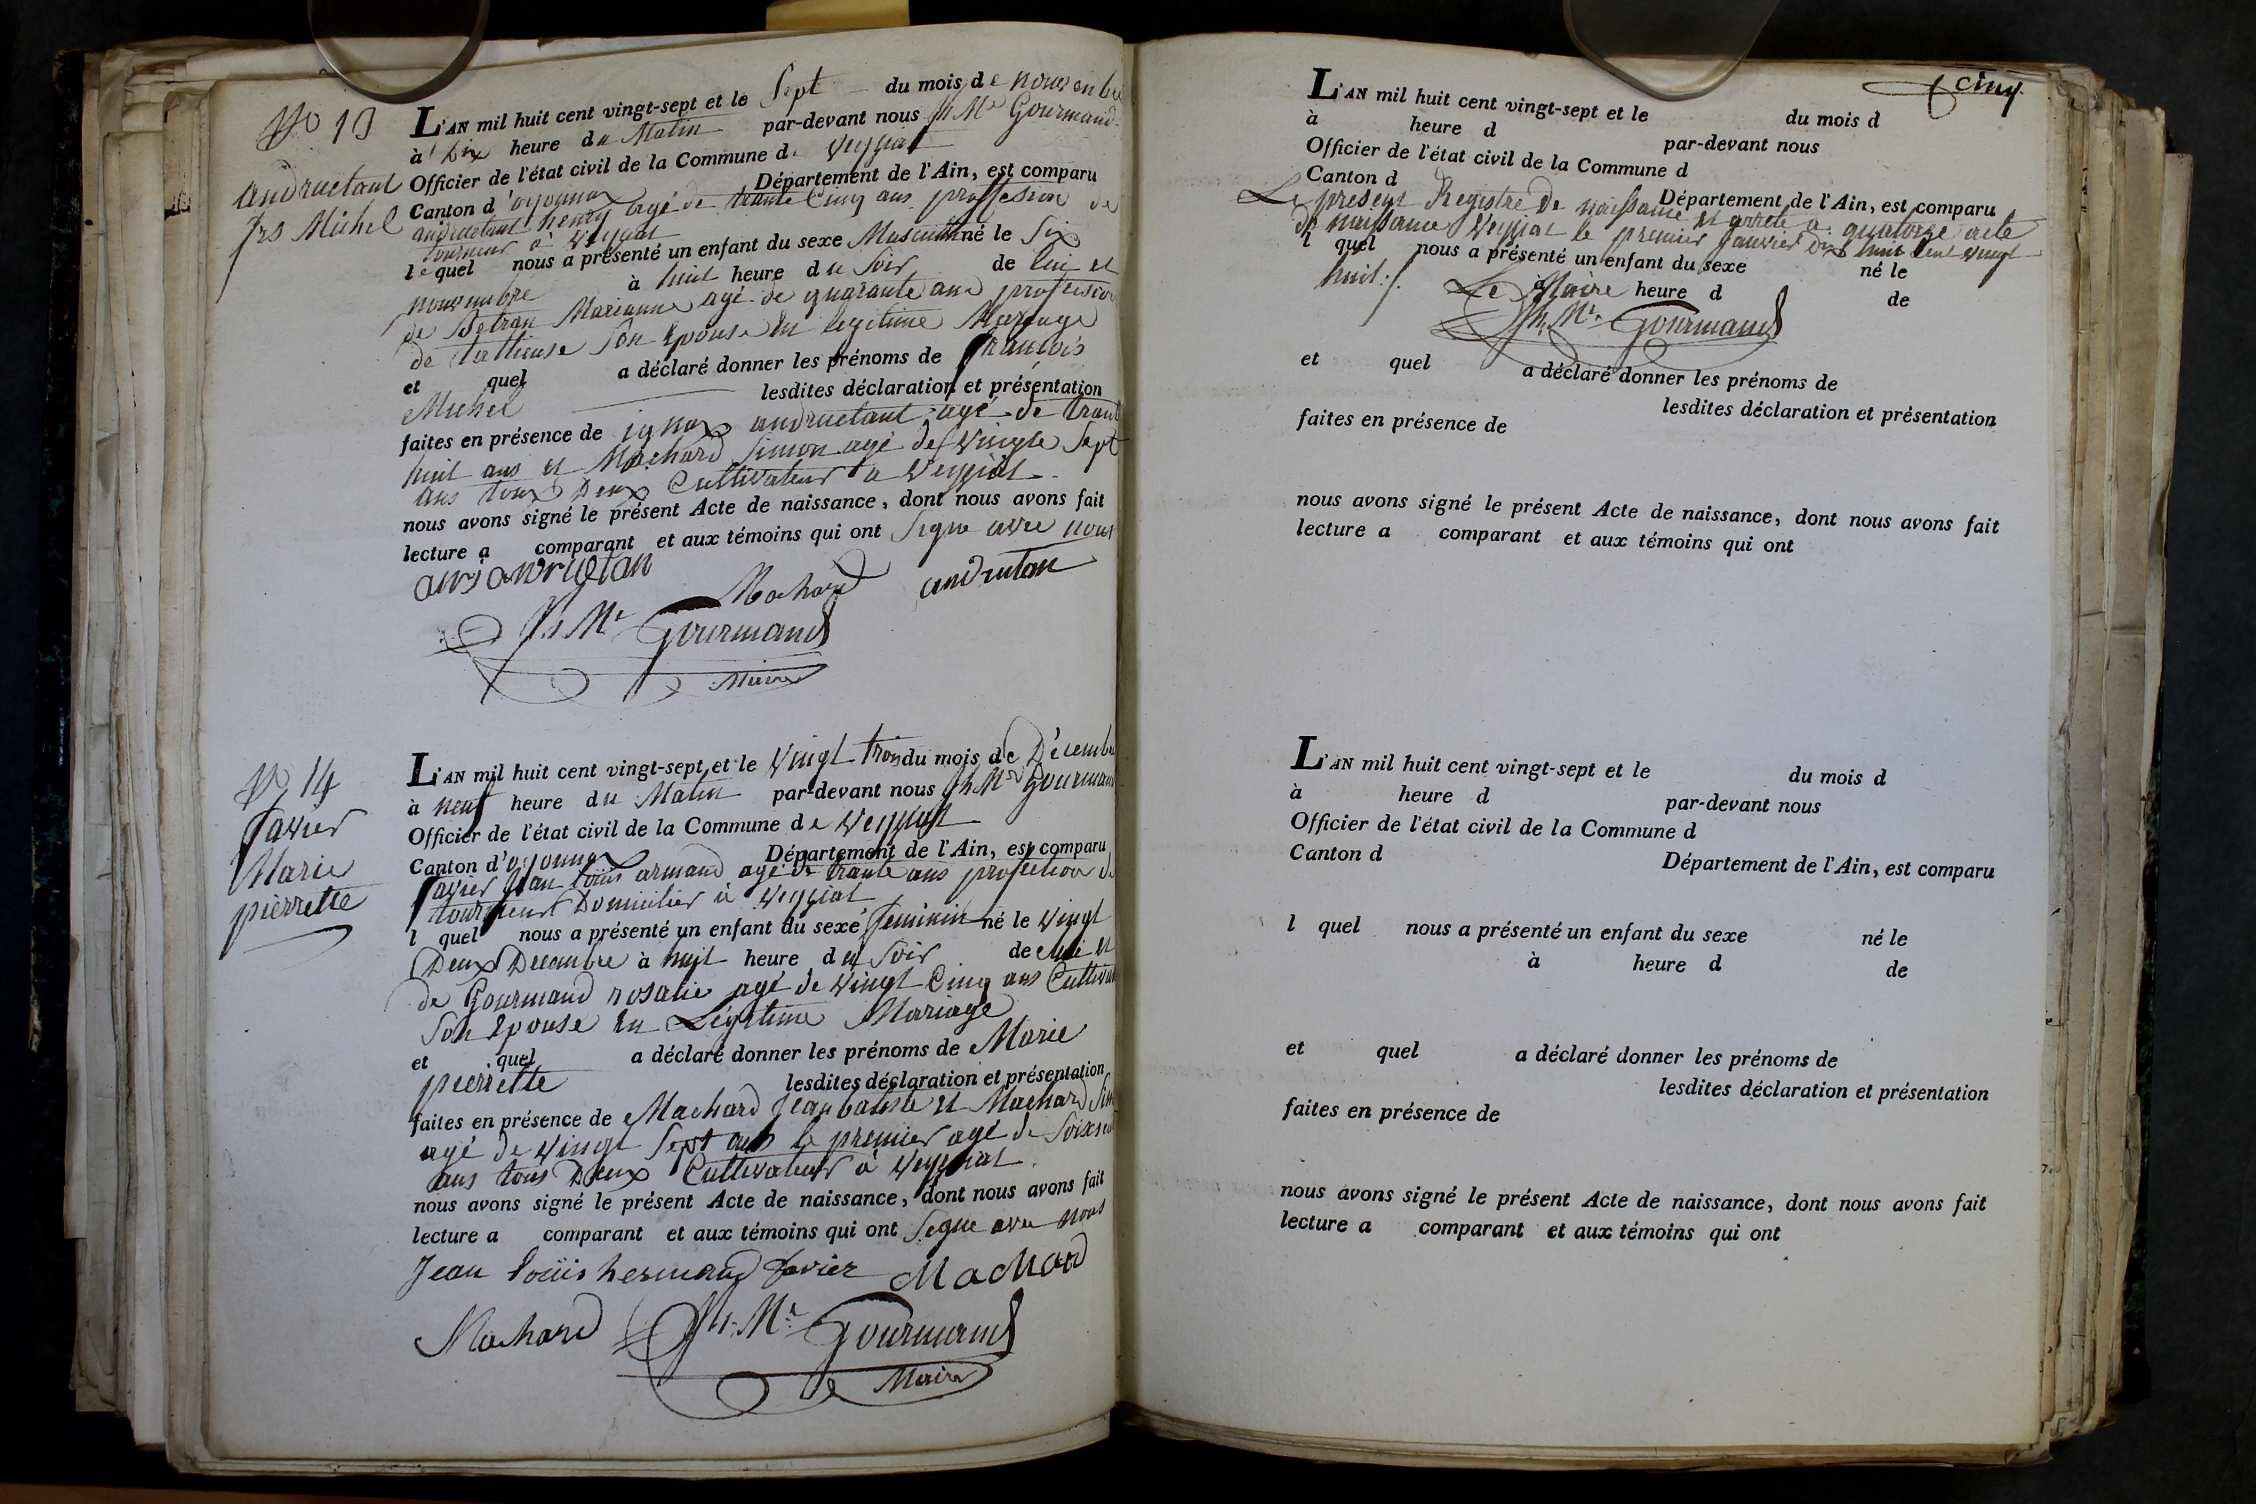 No 13
andructant
frs Michel
L'AN mil huit cent vingt-sept et le Sept du mois de nouvenbre
à Dix heure du Matin par-devant nous Jh Me Gourmand
Officier de l'état civil de la Commune de Veyziat
Canton d'oyonnax Département de l'Ain, est comparu
andructant henry agé de trante Cinq ans proffesion de
tourneur à Veyziat
le quel nous a présenté un enfant du sexe Masculin né le Six
nouvembre à huit heure du Soir de lui et
de Betran Marianne agé de quarante ans profession
de Son Epouse En legitime Mariage
et quel a déclaré donner les prénoms de francois
Michel lesdites déclaration et présentation
faites en présence de ignax andructant agé de trante
huit ans et Machard Simon agé de Vingte Sept
ans toux Deux Cultivateur a Veyziat
nous avons signé le présent Acte de naissance, dont nous avons fait
lecture a comparant et aux témoins qui ont Signe avec nous
Machard andrutan
Jh Me Gourmand
Maire
No 14
favier
Marie
pierrette
L'AN mil huit cent vingt-sept et le Vingt trois du mois de Décembre
à neuf heure du Matin par-devant nous Jh Me Gourmand
Officier de l'état civil de la Commune de Veyziat
Canton d'oyonnax Département de l'Ain, est comparu
favier Jean louis armand agé de trante ans profection de
tourneur Domicilier à Veyziat
l quel nous a présenté un enfant du sexe feminin né le Vingt
Deux Decembre à huit heure du Soir de lui et
de Gourmand rosalie agé de Vingt Cinq ans Cultivat
Son Epouse En Légitime Mariage
et quel a déclaré donner les prénoms de Marie
pierrette lesdites déclaration et présentation
faites en présence de Machard Jean batiste et Machard Sim
agé de Vingt Sept ans le premier agé de Soixsente
ans tous Deux Cultivateur à Veyziat
nous avons signé le présent Acte de naissance, dont nous avons fait
lecture a comparant et aux témoins qui ont Segne avec nous
Jean louis hermand favier Machard
Machard Jh Me Gourmand
Maire
cinq
L'AN mil huit cent vingt-sept et le du mois d
à heure d par-devant nous
Officier de l'état civil de la Commune d
Canton d Département de l'Ain, est comparu
Le present Registre De naissance et arrêté a quatorze acte
de naissance Veyziat le premier Janvier Dix huit Cent vingt
l quel nous a présenté un enfant du sexe né le
huit
à heure d de
Le Maire
Jh Me Gourmand
et quel a déclaré donner les prénoms de
lesdites déclaration et présentation
faites en présence de
nous avons signé le présent Acte de naissance, dont nous avons fait
lecture a comparant et aux témoins qui ont
L'AN mil huit cent vingt-sept et le du mois d
à heure d par-devant nous
Officier de l'état civil de la Commune d
Canton d Département de l'Ain, est comparu
l quel nous a présenté un enfant du sexe né le
à heure d de
et quel a déclaré donner les prénoms de
lesdites déclaration et présentation
faites en présence de
nous avons signé le présent Acte de naissance, dont nous avons fait
lecture a comparant et aux témoins qui ont